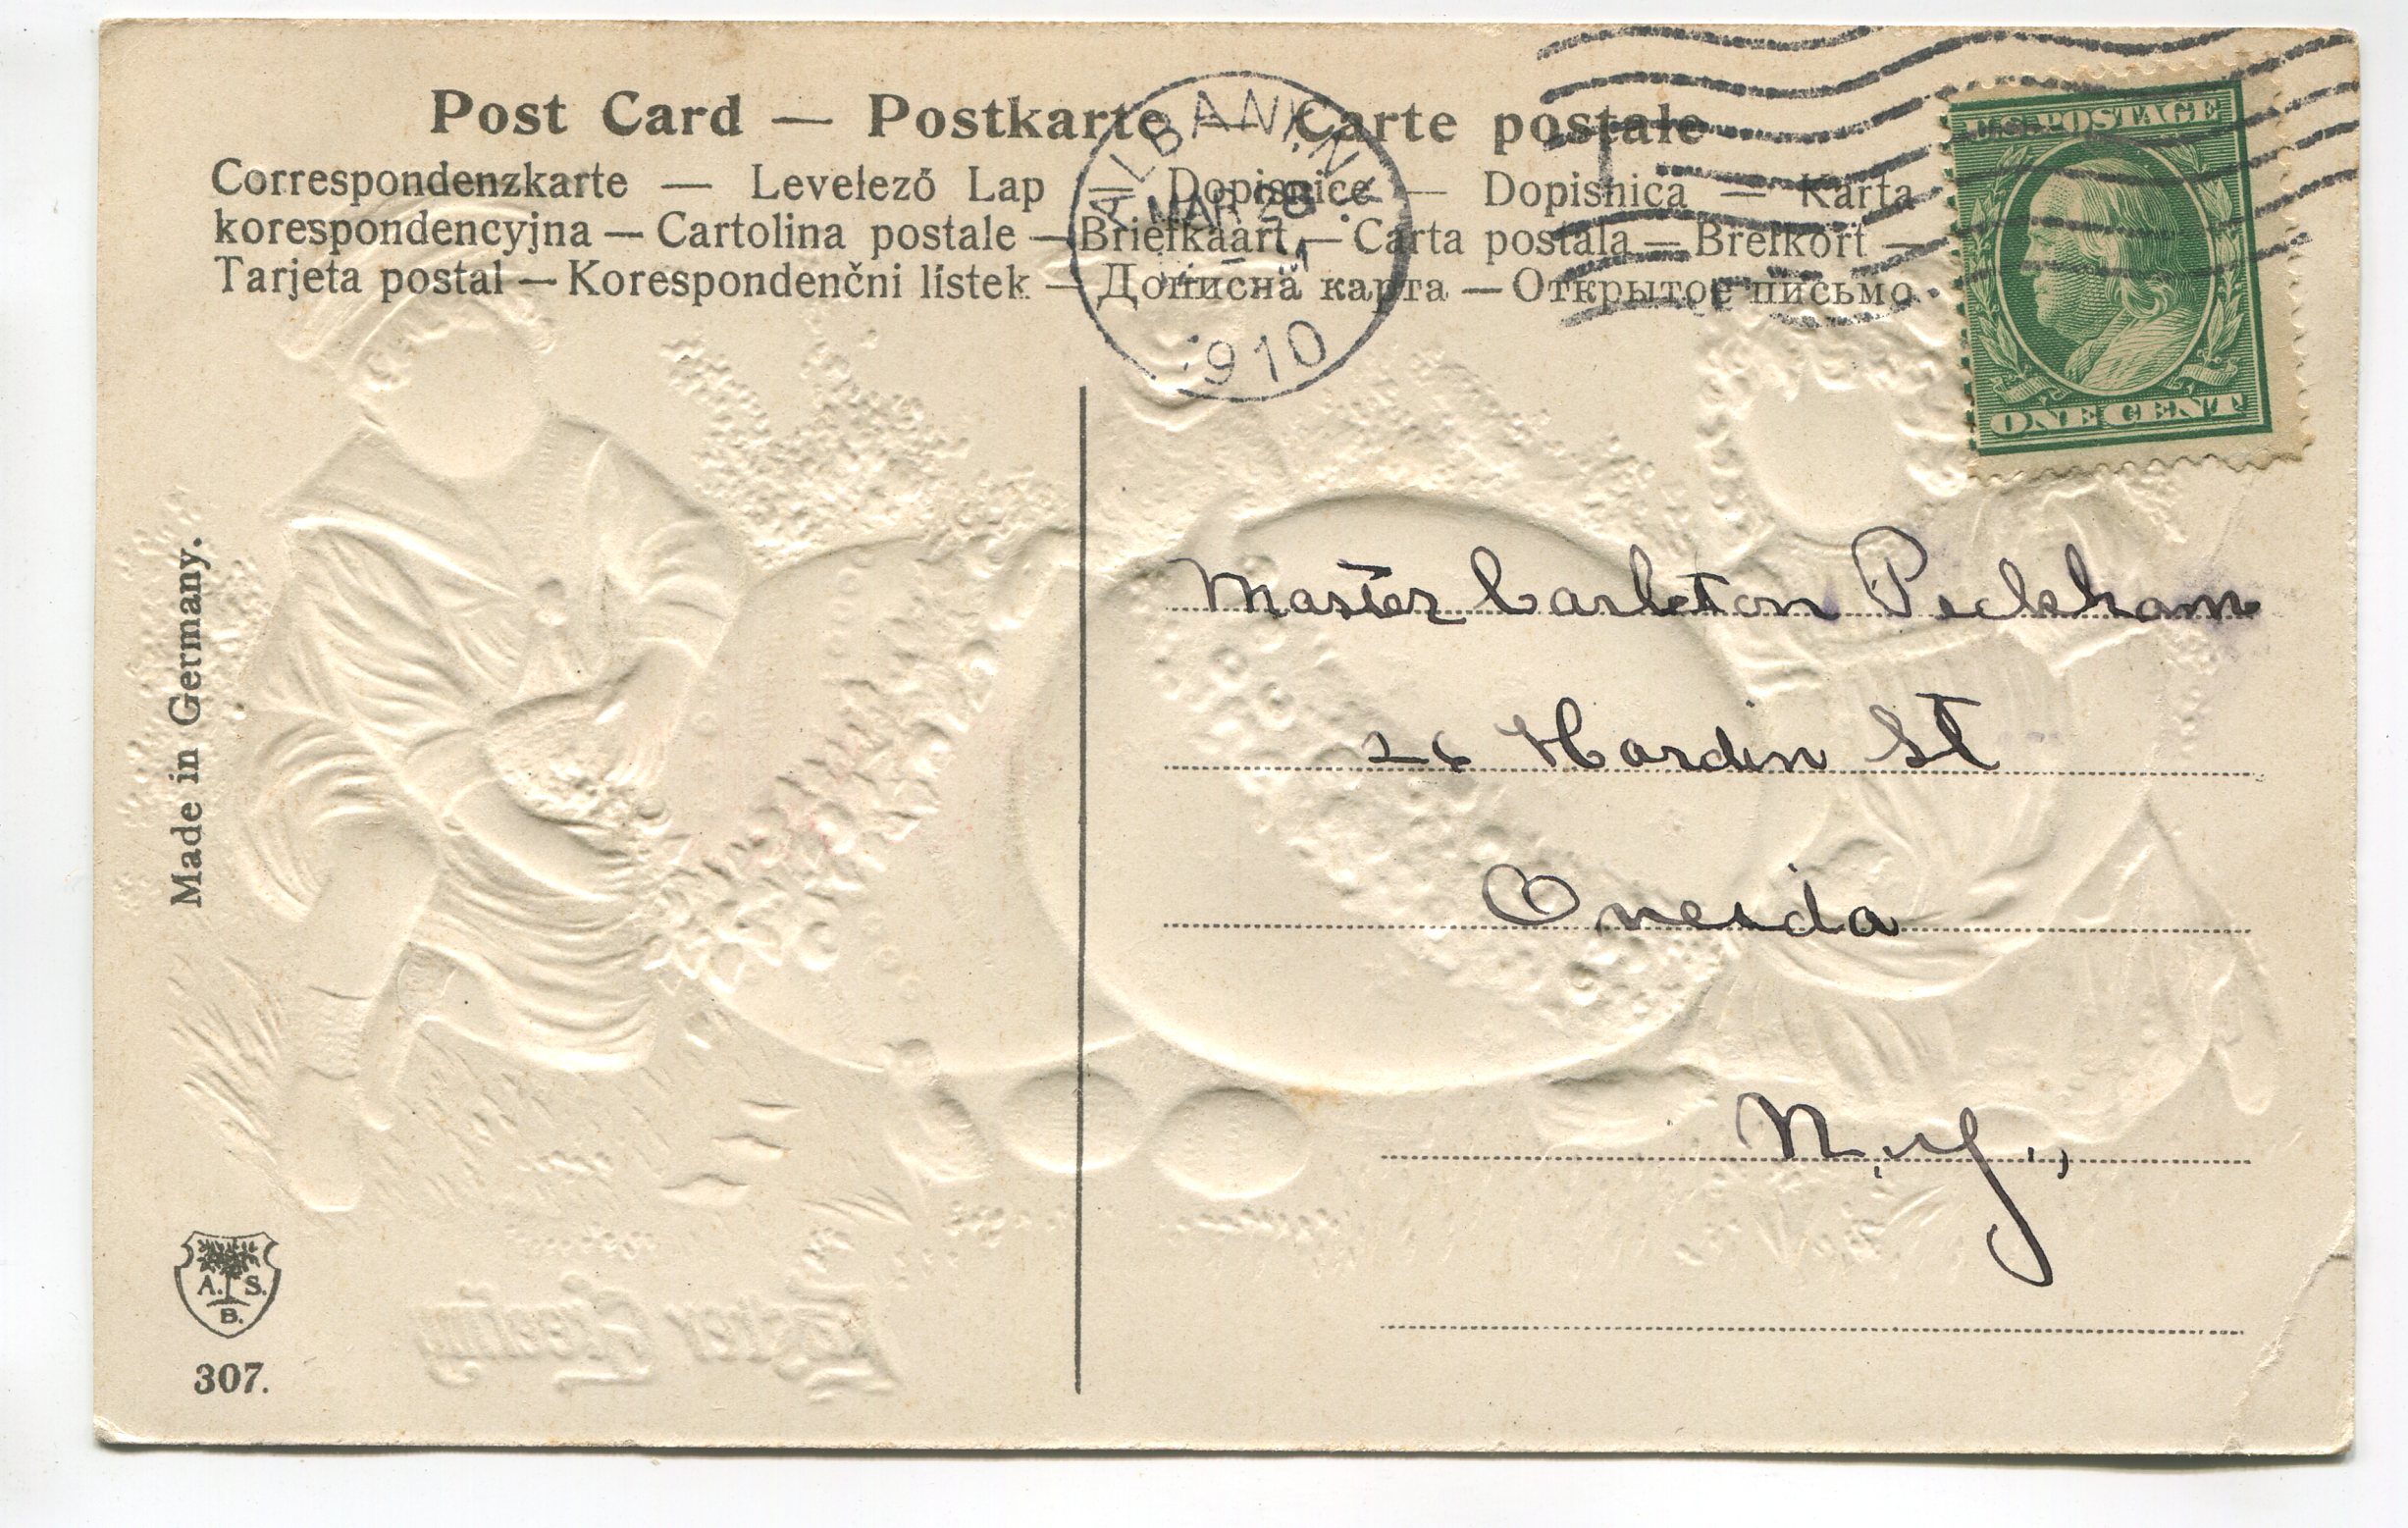 Post Card — Postkarte — Carte postale
Correspondenzkarte — Levelező Lap — Dopisnice — Dopisnica — Karta
korespondencyjna — Cartolina postale — Briefkaart — Carta postala — Brefkort —
Tarjeta postal — Korespondenčni listek — Дописна карта — Открытое письмо.
ALBANY, N.Y.
MAR 26
1910
U.S. POSTAGE
ONE CENT
Made in Germany.
Master Carleton Peckham
26 Hardin St
Oneida
N.Y.,
A. S.
B.
307.
Easter Greeting